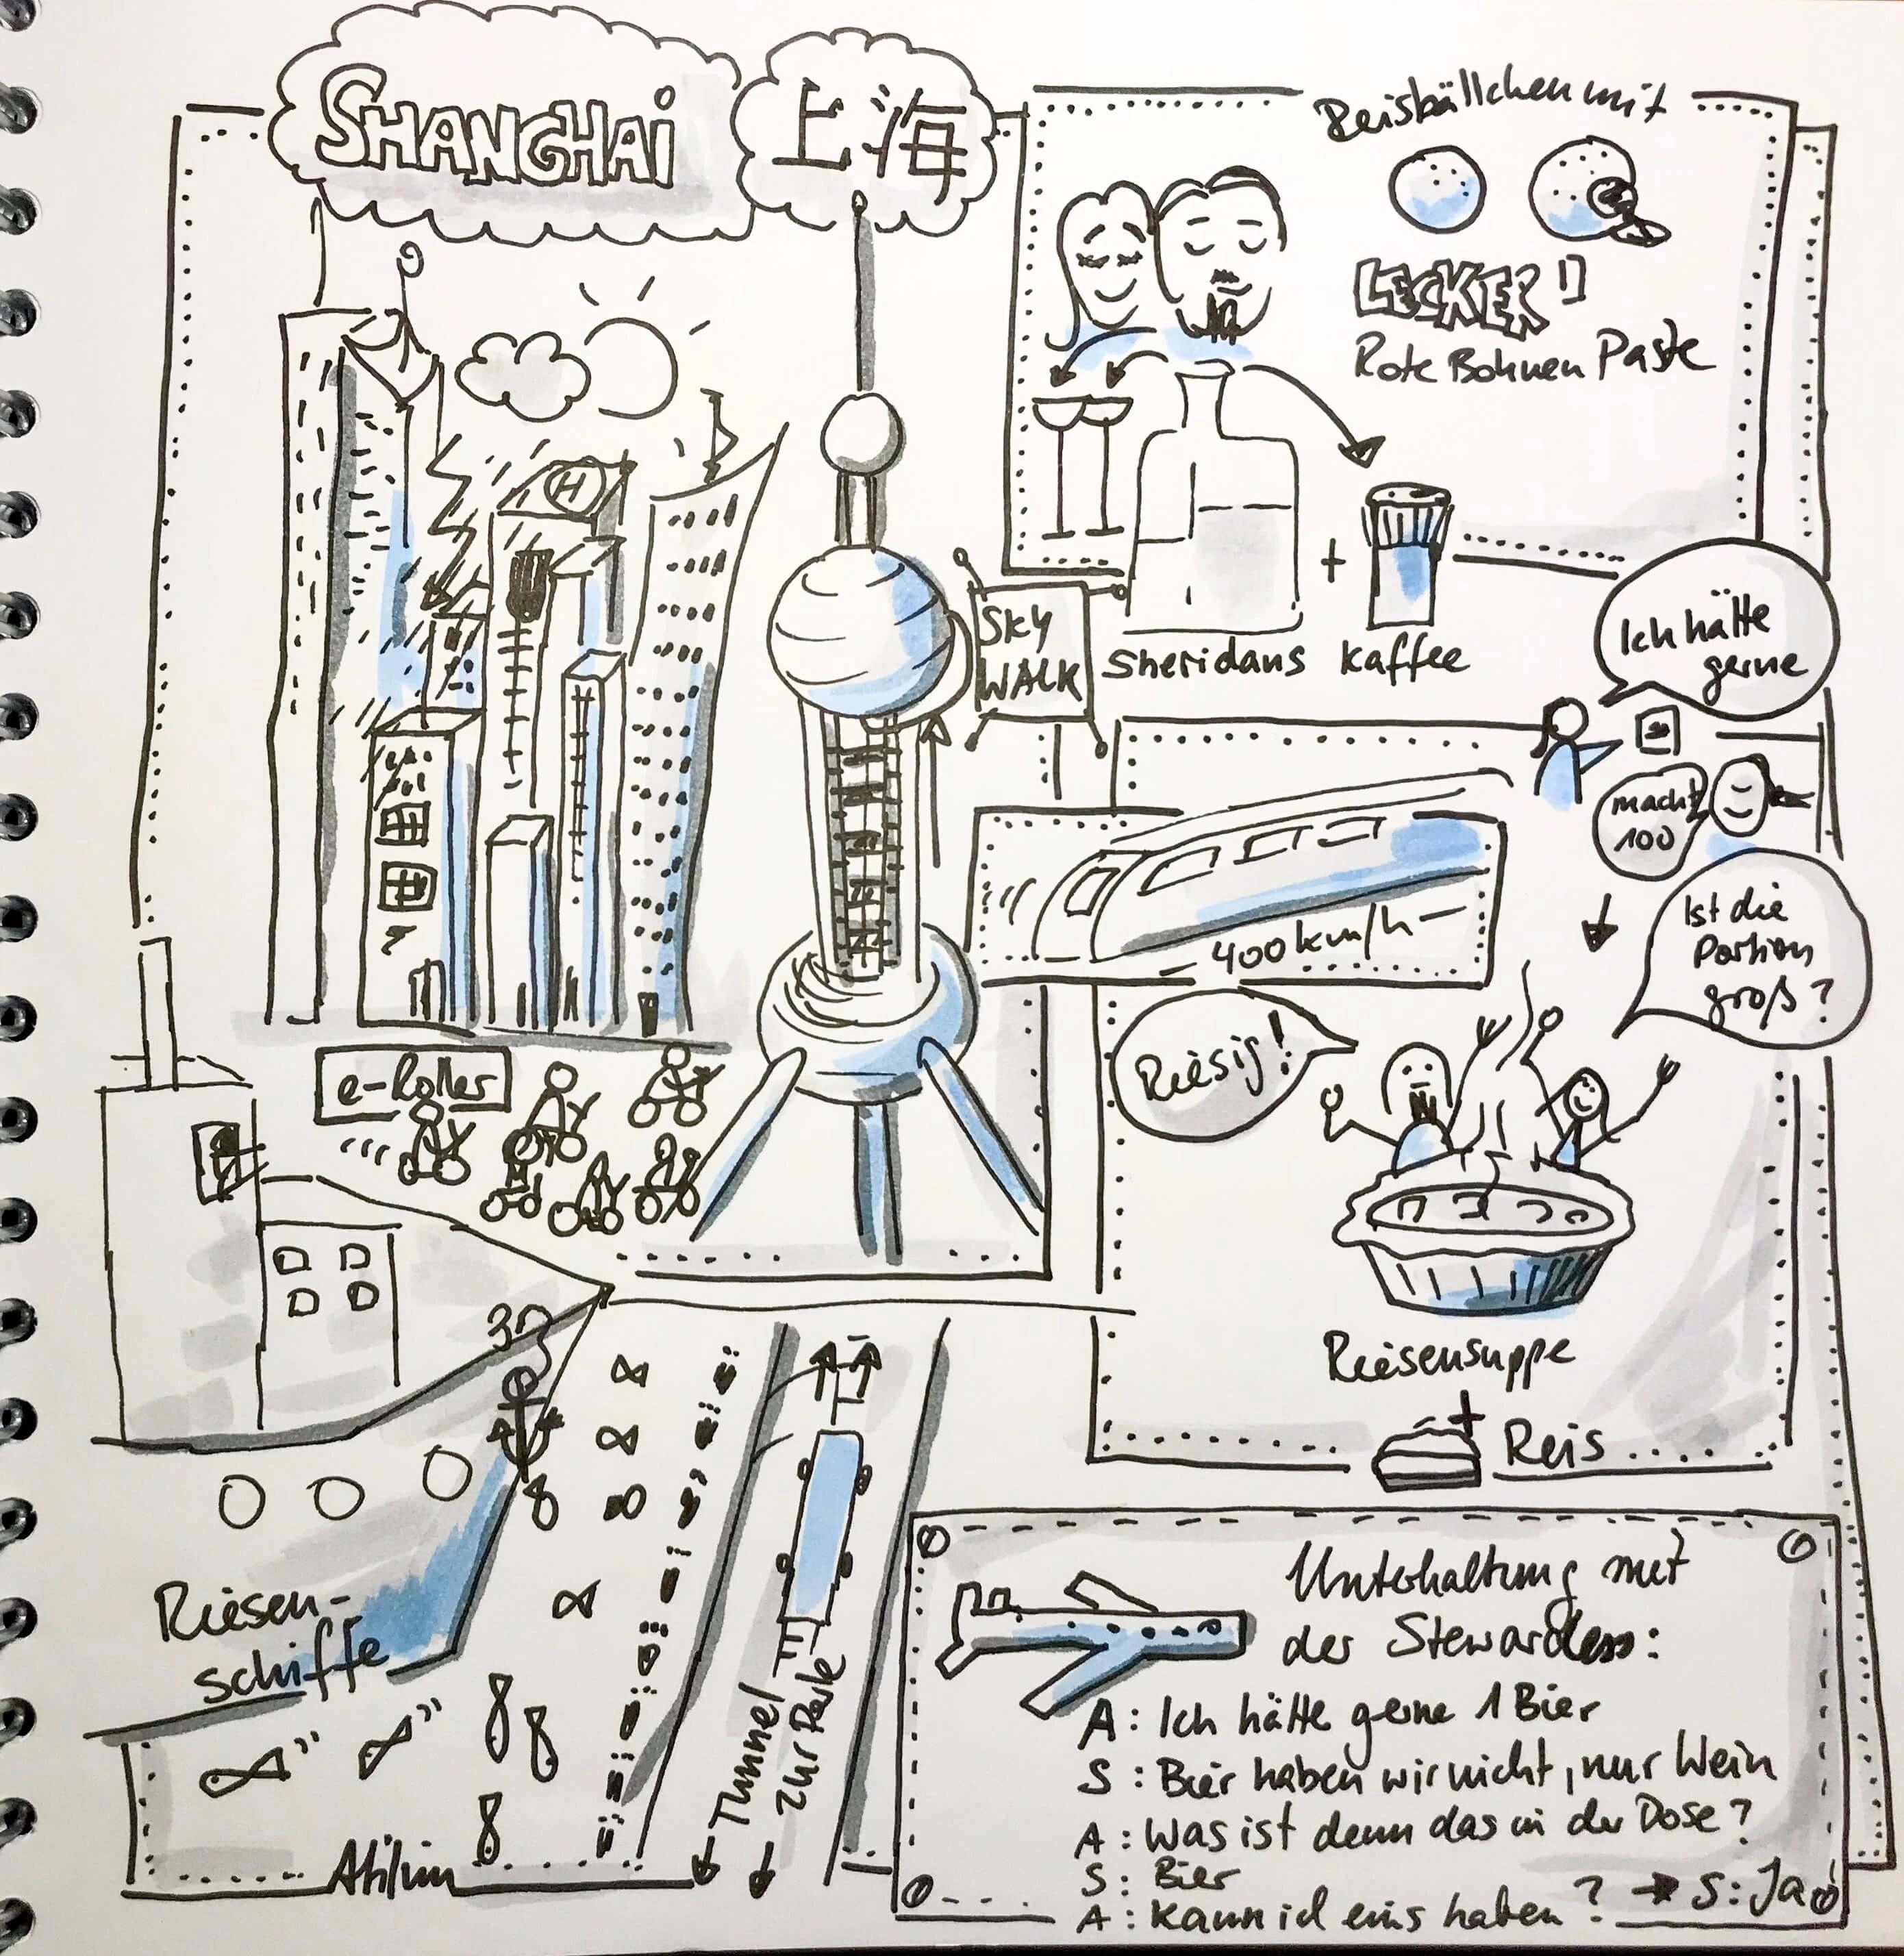 SHANGHAi
上海
Reisbällchen mit
LECKER!!
Rote Bohnen Paste
H
SKY
WALK
Sheridans + Kaffee
Ich hätte
gerne
macht
100
400 km/h
Ist die
Portion
groß?
Riesig!
e-Roller
Riesensuppe
+
Reis
Riesen-
schiffe
Tunnel
zur Perle
Unterhaltung mit
der Stewardess:
A: Ich hätte gerne 1 Bier
S: Bier haben wir nicht, nur Wein
A: Was ist denn das in der Dose?
S: Bier
A: Kann ich eins haben? → S: Ja